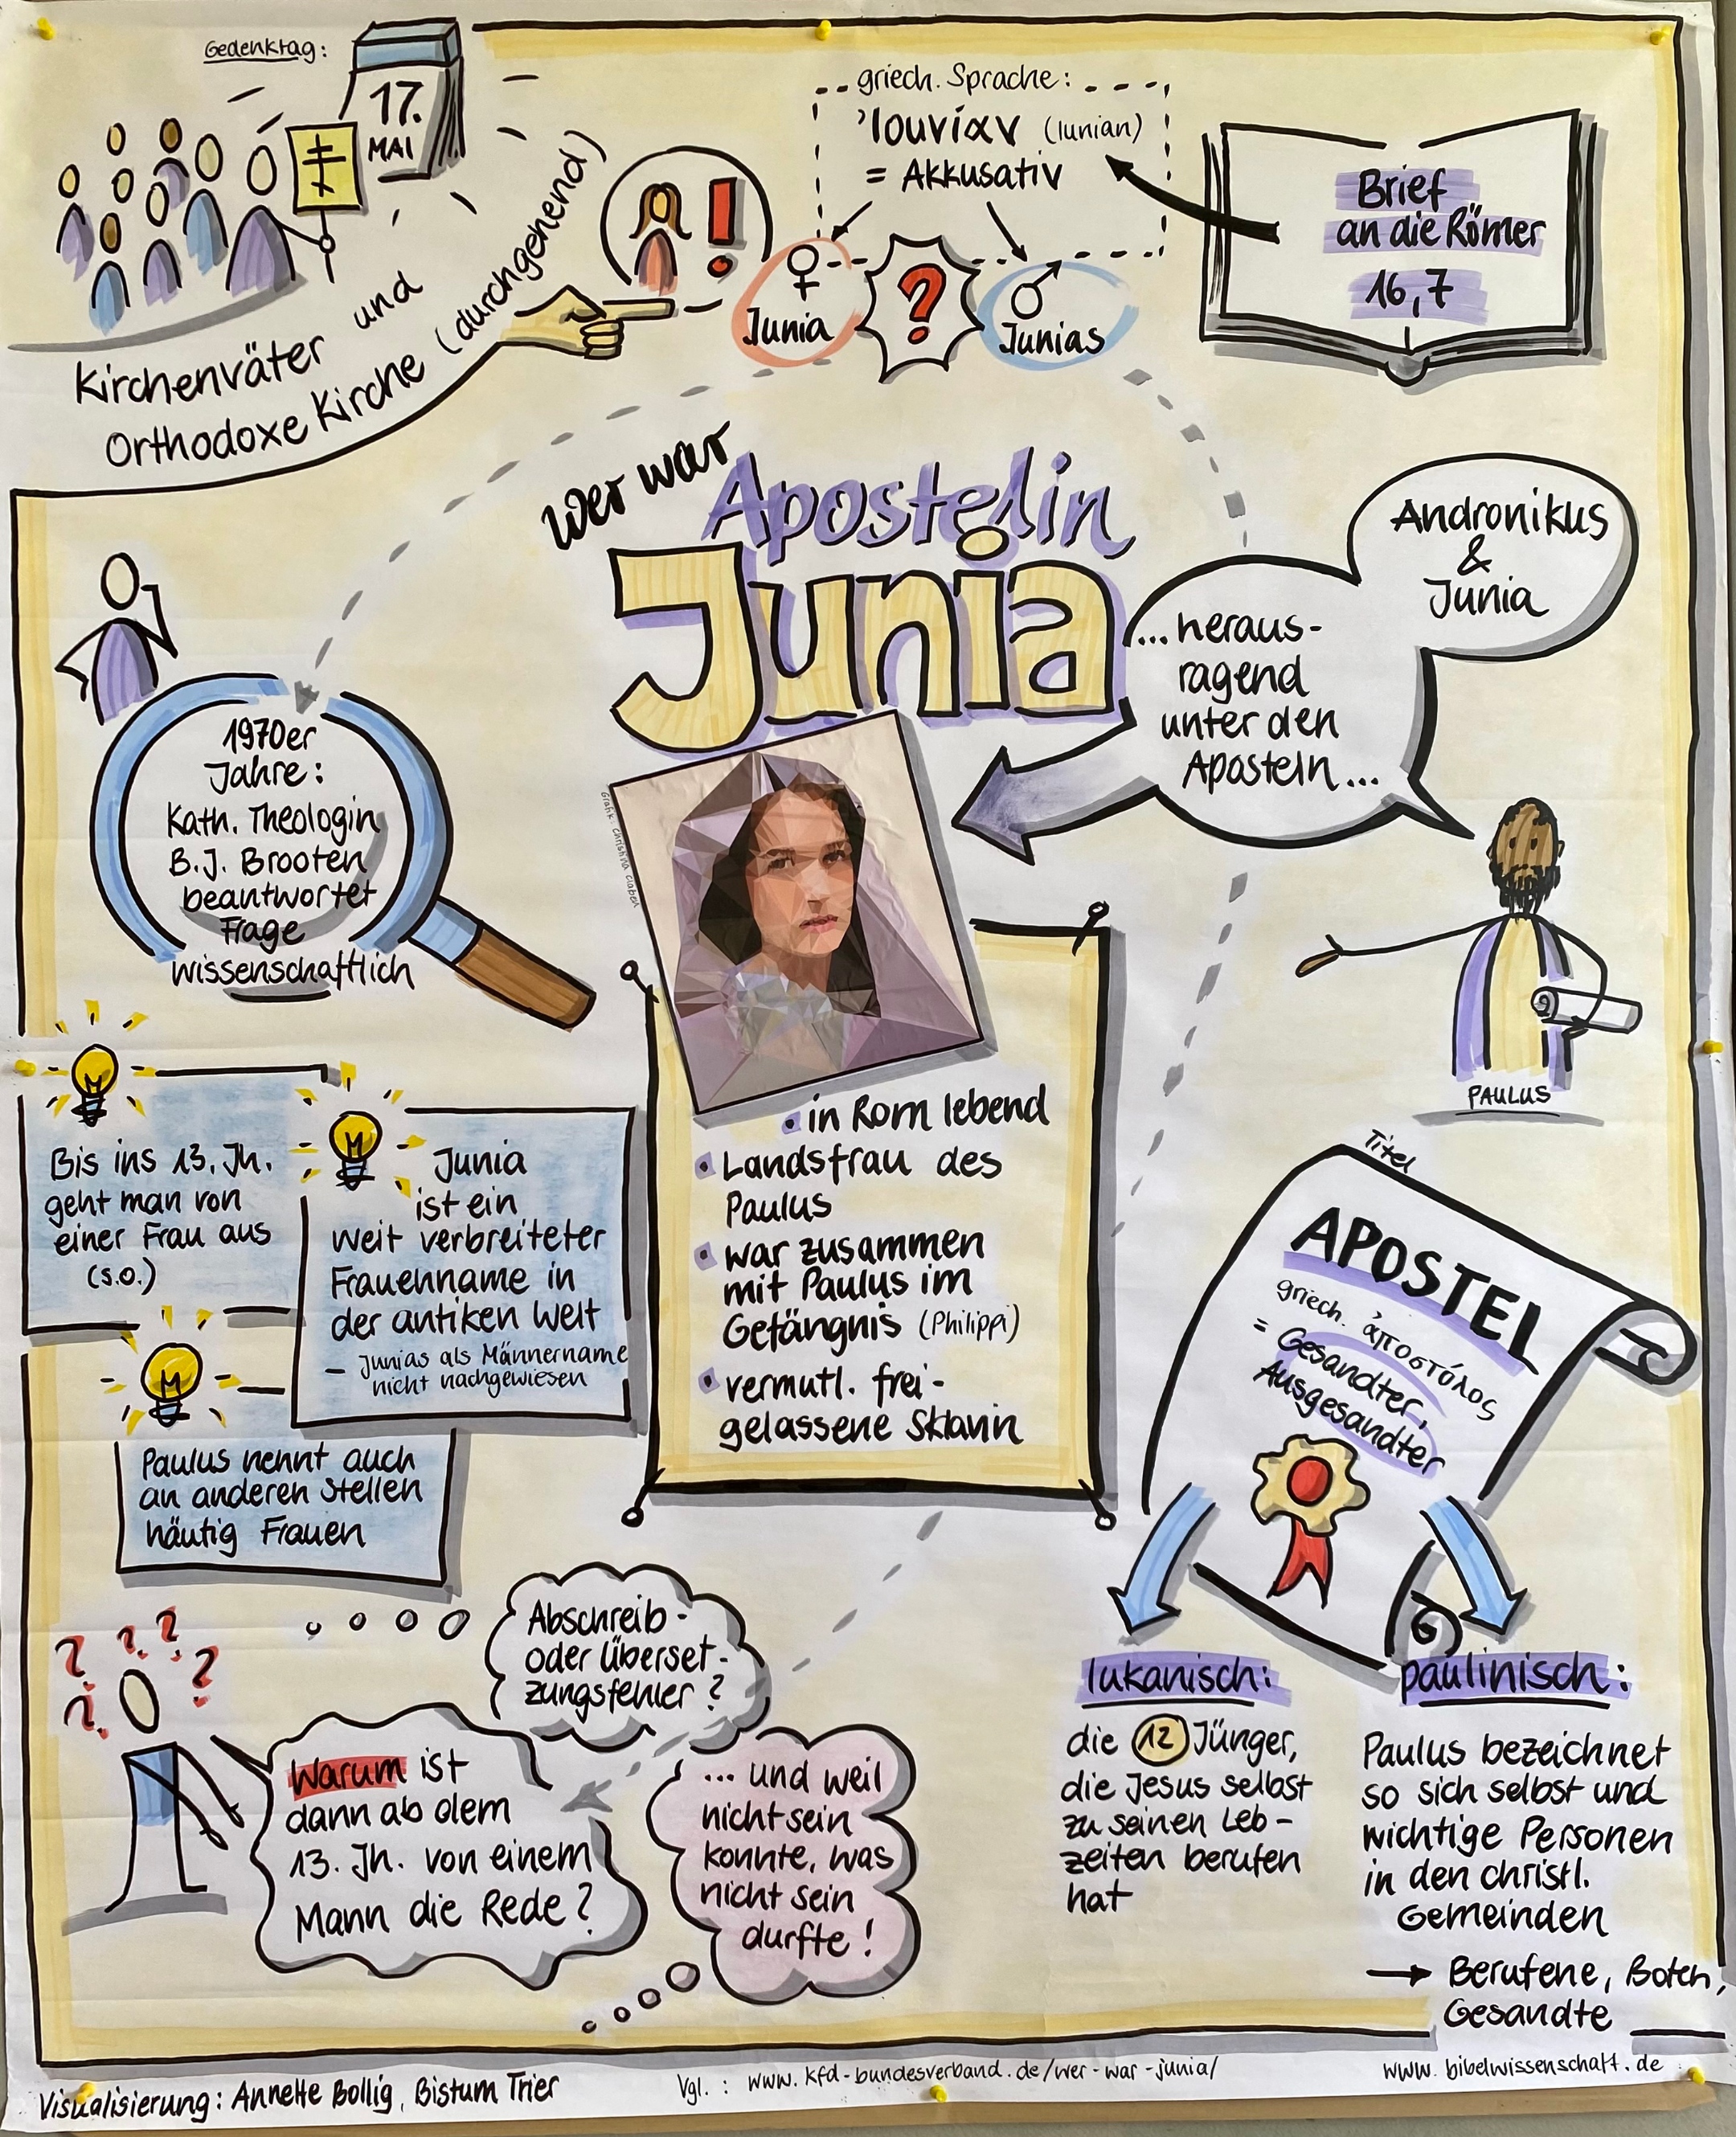 Gedenktag:
17.
MAI
Kirchenväter und
Orthodoxe Kirche (durchgehend)
!
griech. Sprache:
'Ιουνίαν (Iunian)
= Akkusativ
♀
Junia
?
♂
Junias
Brief
an die Römer
16,7
wer war
Apostelin
Junia
Andronikus
&
Junia
...heraus-
ragend
unter den
Aposteln...
PAULUS
1970er
Jahre:
Kath. Theologin
B.J. Brooten
beantwortet
Frage
wissenschaftlich
Grafik: Christina Claßen
• in Rom lebend
• Landsfrau des
Paulus
• war zusammen
mit Paulus im
Gefängnis (Philippi)
• vermutl. frei-
gelassene Sklavin
Bis ins 13. Jh.
geht man von
einer Frau aus
(s.o.)
Junia
ist ein
weit verbreiteter
Frauenname in
der antiken Welt
- Junias als Männername
nicht nachgewiesen
Paulus nennt auch
an anderen Stellen
häufig Frauen
Titel
APOSTEL
griech. ἀποστόλος
= Gesandter,
Ausgesandter
lukanisch:
die 12 Jünger,
die Jesus selbst
zu seinen Leb-
zeiten berufen
hat
paulinisch:
Paulus bezeichnet
so sich selbst und
wichtige Personen
in den christl.
Gemeinden
→ Berufene, Boten,
Gesandte
? ? ? ? ?
Abschreib-
oder Überset-
zungsfehler?
Warum ist
dann ab dem
13. Jh. von einem
Mann die Rede?
... und weil
nicht sein
konnte, was
nicht sein
durfte!
Visualisierung: Annette Bollig, Bistum Trier
Vgl.: www.kfd-bundesverband.de/wer-war-junia/
www.bibelwissenschaft.de